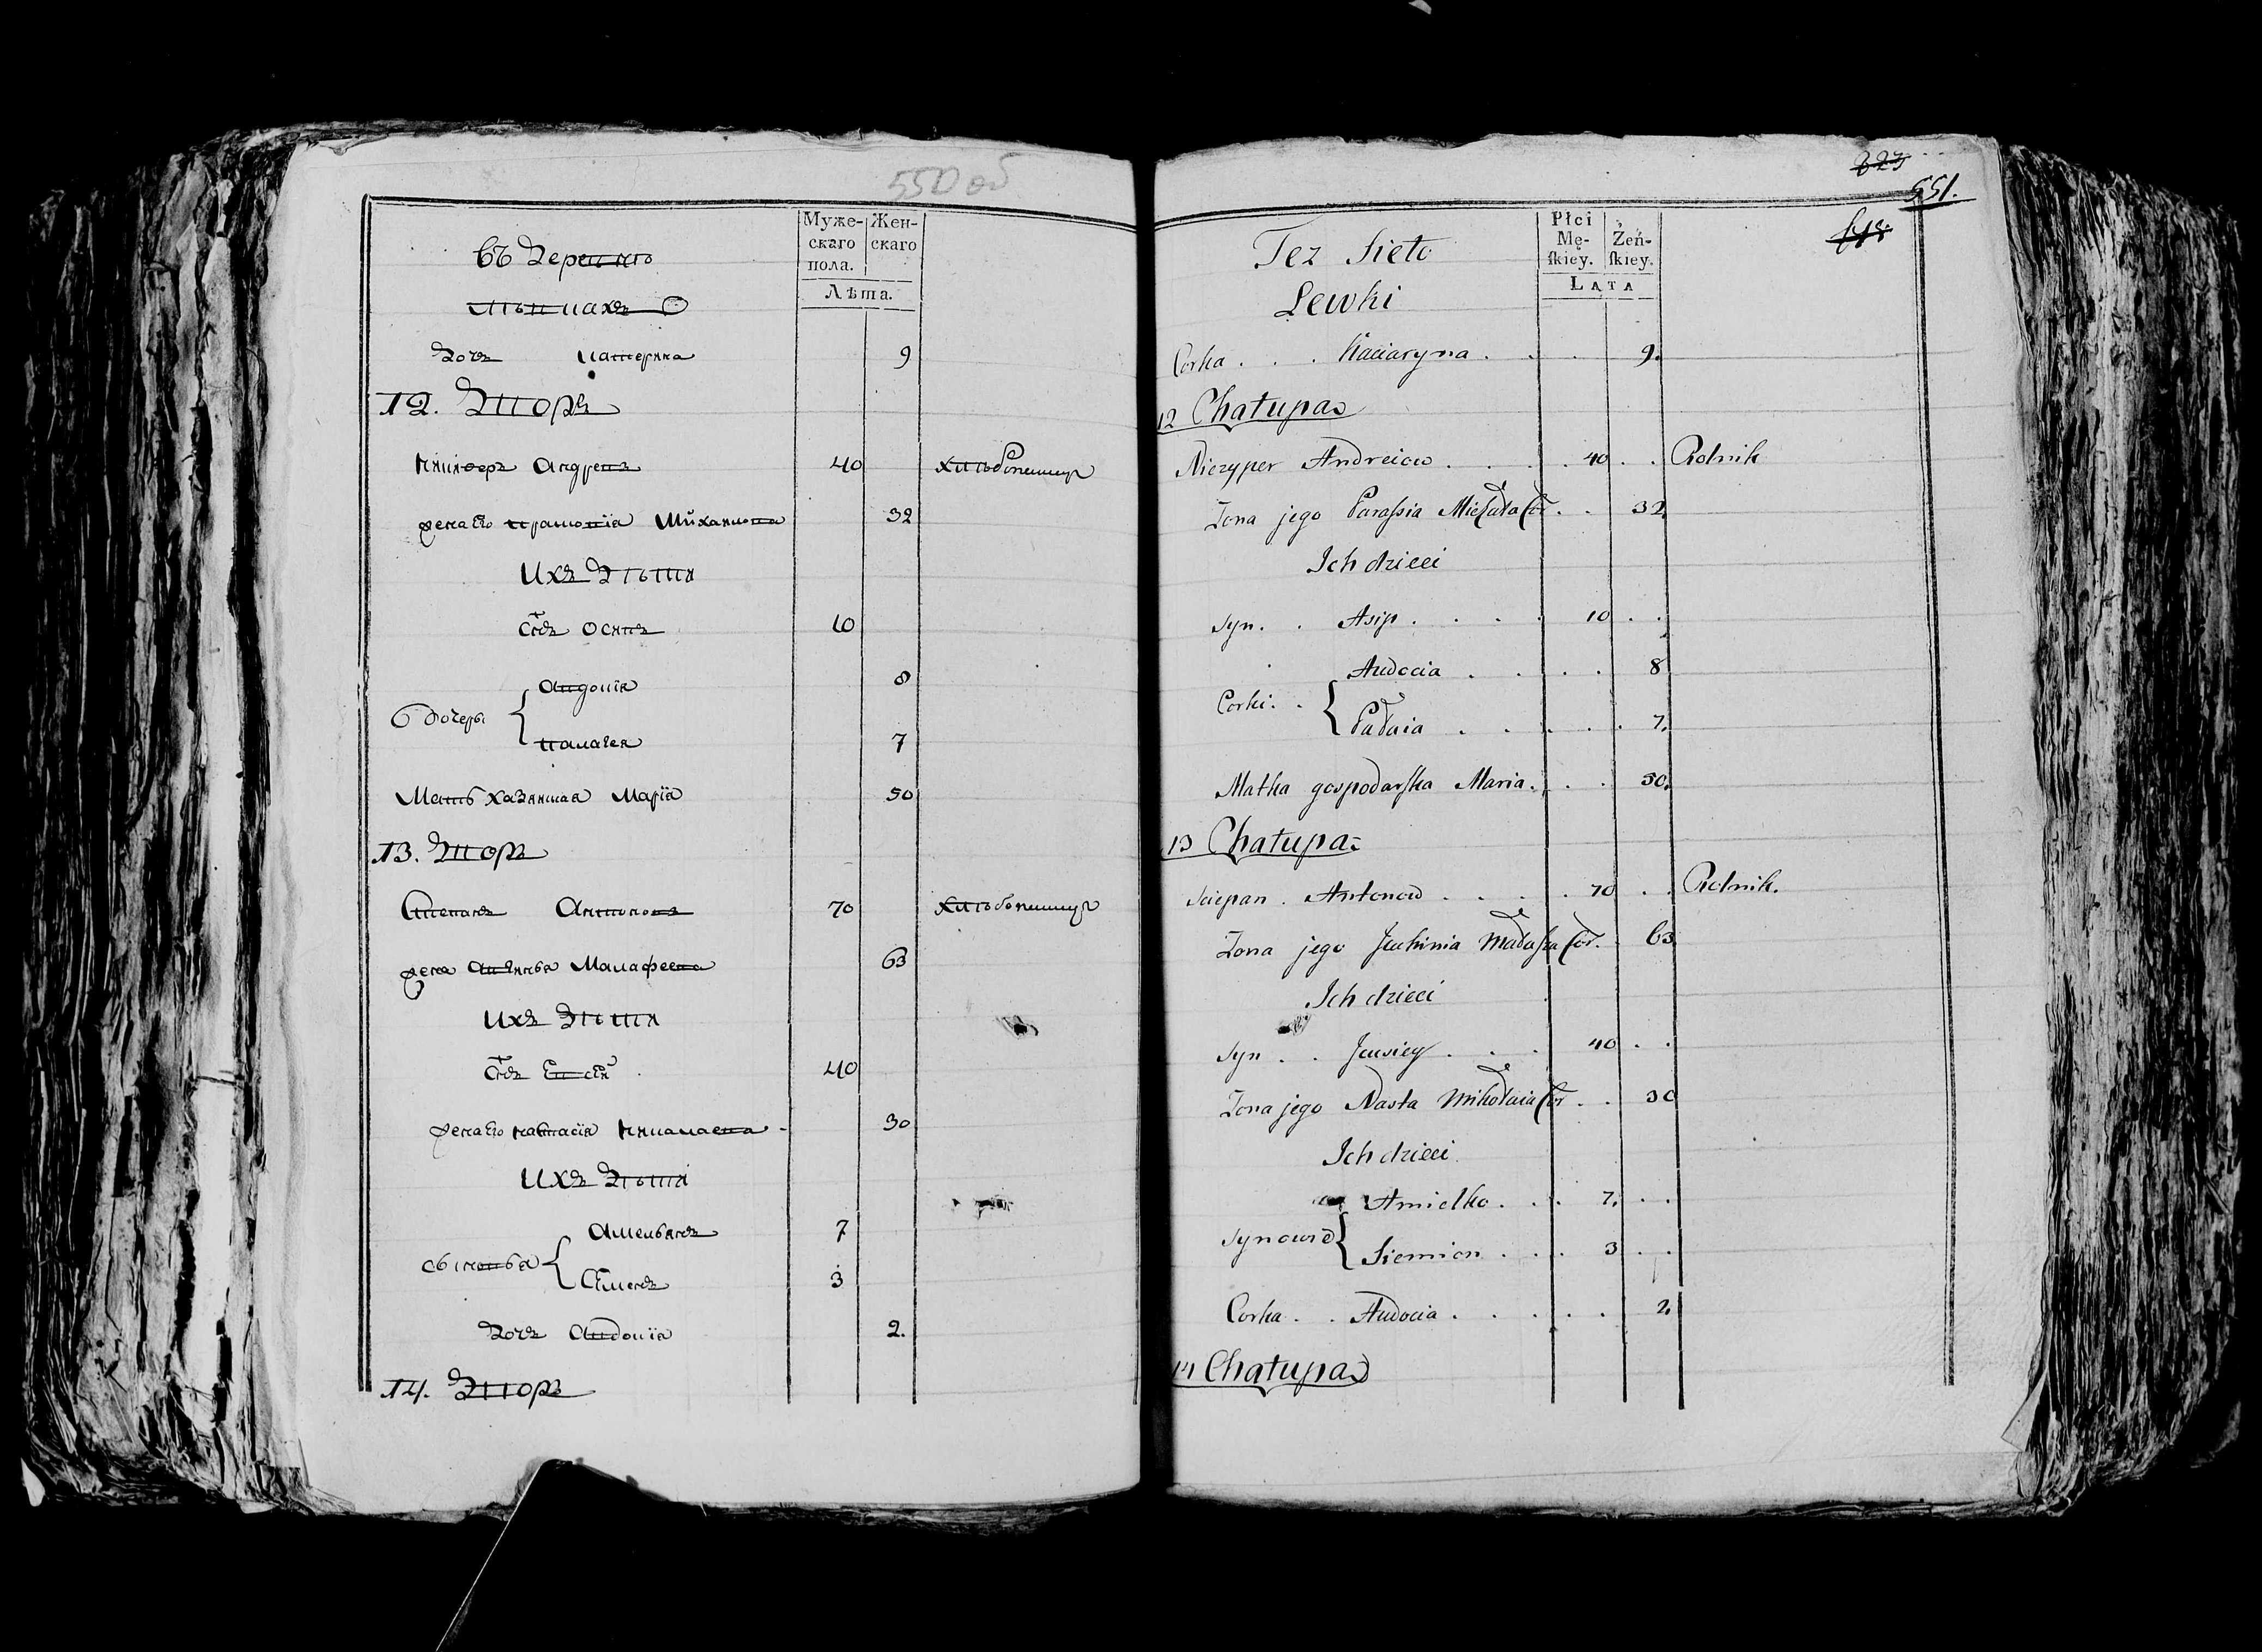 550 об
Муже-
скаго
пола.
Жен-
скаго
Лѣта.
въ Деревнѣ
Дочь Катерина 9
12. Дворъ
Ничиперъ Андреевъ 40 Хлѣбопашецъ
жена Его Прасковiя Михайлова 32
Ихъ Дѣти
Снъ Осипъ 10
Дочери { Авдотiя 8
Палагея 7
Мать Хазяйская Марiя 50
13. Дворъ
Степанъ Антоновъ 70 Хлѣбопашецъ
жена Малафеева 63
Ихъ Дѣти
Снъ Евсей 40
жена Его Настасiя Николаева 30
Ихъ Дѣти
Сыновья { Амельянъ 7
Семенъ 3
Дочь Авдотiя 2.
14. Дворъ
551.
Też Sieło
Lewki
Płci
Mę-
ſkiey.
Żeń-
ſkiey.
LATA
Corka . . . Kaciaryna . . . 9.
12 Chałupa
Niczyper Andreiow . . . . 40 . . Rolnik
Zona jego Paraſsia Michała Cor. . . 32.
Ich dzieci
Syn . . Asip . . . . 10 . .
Corki . . { Audocia . . . . 8
Pałaia . . . . . 7.
Matka gospodarſka Maria . . . 50.
13 Chałupa
Sciepan . Antonow . . . . 70 . . Rolnik.
Zona jego Cor. . 63.
Ich dzieci
Syn . . Jausiey . . . 40 . .
Zona jego Nasta Mikołaia Cor . . 30
Ich dzieci
Synowie { Amielko . . . 7. . .
Siemion . . . 3 . .
Corka . . Audocia . . . . . 2.
14 Chałupa